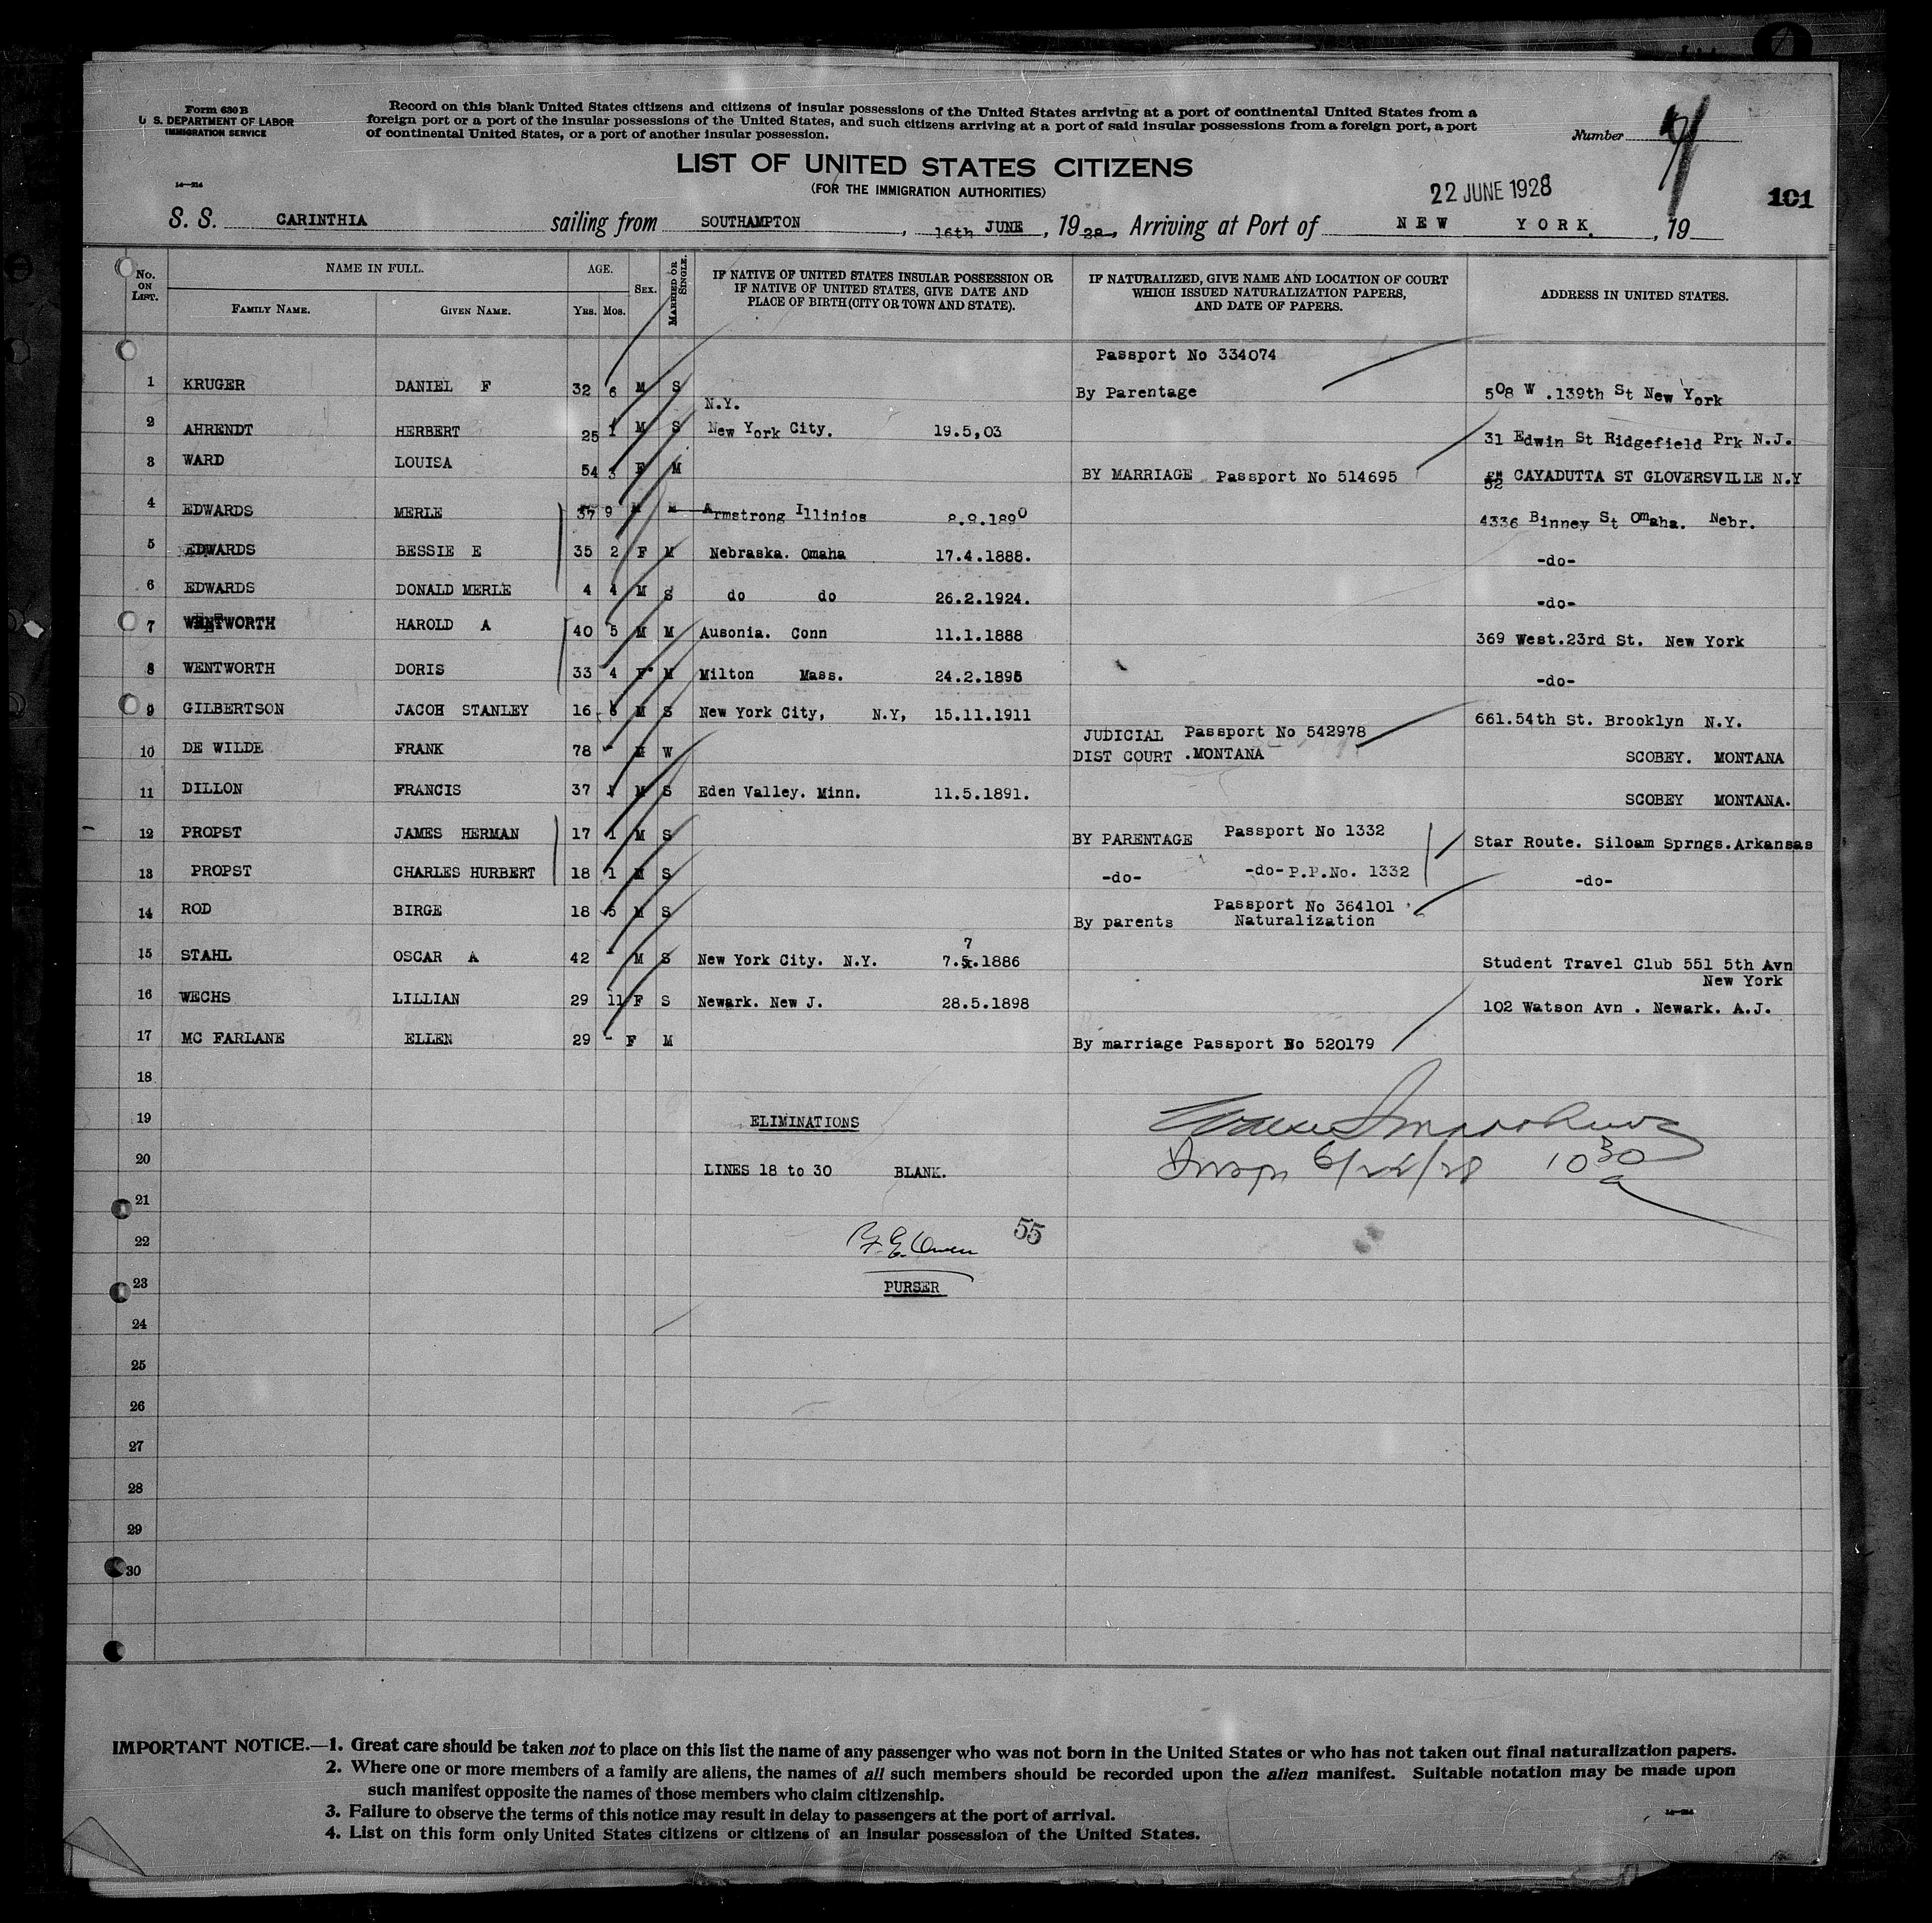 Form 630 B
U. S. DEPARTMENT OF LABOR
IMMIGRATION SERVICE
14—214
Record on this blank United States citizens and citizens of insular possessions of the United States arriving at a port of continental United States from a
foreign port or a port of the insular possessions of the United States, and such citizens arriving at a port of said insular possessions from a foreign port, a port
of continental United States, or a port of another insular possession.
Number
LIST OF UNITED STATES CITIZENS
(FOR THE IMMIGRATION AUTHORITIES)
22 JUNE 1928
101
S. S. CARINTHIA sailing from SOUTHAMPTON, 16th JUNE, 1928, Arriving at Port of NEW YORK., 19
No. ON LIST. NAME IN FULL. FAMILY NAME. GIVEN NAME. AGE. YRS. MOS. SEX. MARRIED OR SINGLE. IF NATIVE OF UNITED STATES INSULAR POSSESSION OR IF NATIVE OF UNITED STATES, GIVE DATE AND PLACE OF BIRTH (CITY OR TOWN AND STATE). IF NATURALIZED, GIVE NAME AND LOCATION OF COURT WHICH ISSUED NATURALIZATION PAPERS, AND DATE OF PAPERS. ADDRESS IN UNITED STATES.
Passport No 334074
1 KRUGER DANIEL F 32 6 M S By Parentage 508 W .139th St New York
N.Y.
2 AHRENDT HERBERT 25 1 M S New York City. 19.5,03 31 Edwin St Ridgefield Prk N.J.
3 WARD LOUISA 54 3 F M BY MARRIAGE Passport No 514695 52 CAYADUTTA ST GLOVERSVILLE N.Y
4 EDWARDS MERLE 37 9 M M Armstrong Illinios 8.9.1890 4336 Binney St Omaha. Nebr.
5 EDWARDS BESSIE E 35 2 F M Nebraska. Omaha 17.4.1888. -do-
6 EDWARDS DONALD MERLE 4 4 M S do do 26.2.1924. -do-
7 WENTWORTH HAROLD A 40 5 M M Ausonia. Conn 11.1.1888 369 West.23rd St. New York
8 WENTWORTH DORIS 33 4 F M Milton Mass. 24.2.1895 -do-
9 GILBERTSON JACOH STANLEY 16 6 M S New York City, N.Y, 15.11.1911 661.54th St. Brooklyn N.Y.
JUDICIAL Passport No 542978
10 DE WILDE FRANK 78 - M W DIST COURT .MONTANA SCOBEY. MONTANA
11 DILLON FRANCIS 37 1 M S Eden Valley. Minn. 11.5.1891. SCOBEY MONTANA.
12 PROPST JAMES HERMAN 17 1 M S BY PARENTAGE Passport No 1332 Star Route. Siloam Sprngs.Arkansas
13 PROPST CHARLES HURBERT 18 1 M S -do- -do- P.P.No. 1332 -do-
Passport No 364101
14 ROD BIRGE 18 5 M S By parents Naturalization
7
15 STAHL OSCAR A 42 - M S New York City. N.Y. 7.5.1886 Student Travel Club 551 5th Avn
New York
16 WECHS LILLIAN 29 11 F S Newark. New J. 28.5.1898 102 Watson Avn . Newark. A.J.
17 MC FARLANE ELLEN 29 - F M By marriage Passport No 520179
18
19 ELIMINATIONS
20 LINES 18 to 30 BLANK. Insp 6/22/28 10 30 a
21
22 55
23 PURSER
24
25
26
27
28
29
30
IMPORTANT NOTICE.—1. Great care should be taken not to place on this list the name of any passenger who was not born in the United States or who has not taken out final naturalization papers.
2. Where one or more members of a family are aliens, the names of all such members should be recorded upon the alien manifest. Suitable notation may be made upon
such manifest opposite the names of those members who claim citizenship.
3. Failure to observe the terms of this notice may result in delay to passengers at the port of arrival.
4. List on this form only United States citizens or citizens of an insular possession of the United States.
14—214